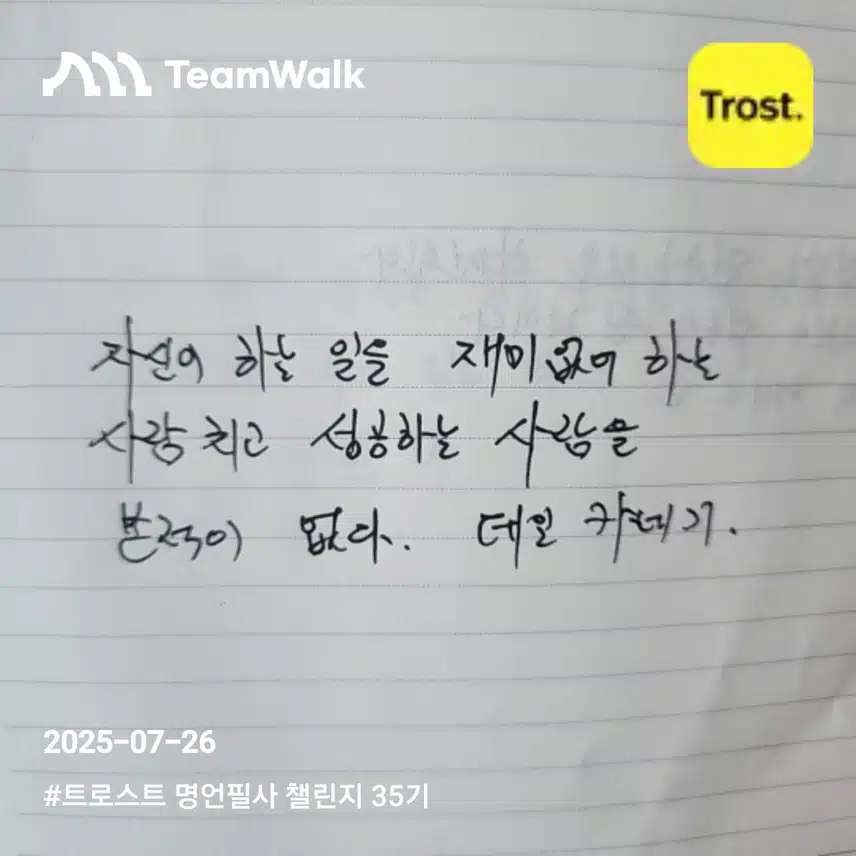 TeamWalk
Trost.
자신이 하는 일을 재미없어 하는
사람치고 성공하는 사람을
본적이 없다. 데일 카네기.
2025-07-26
#트로스트 명언필사 챌린지 35기